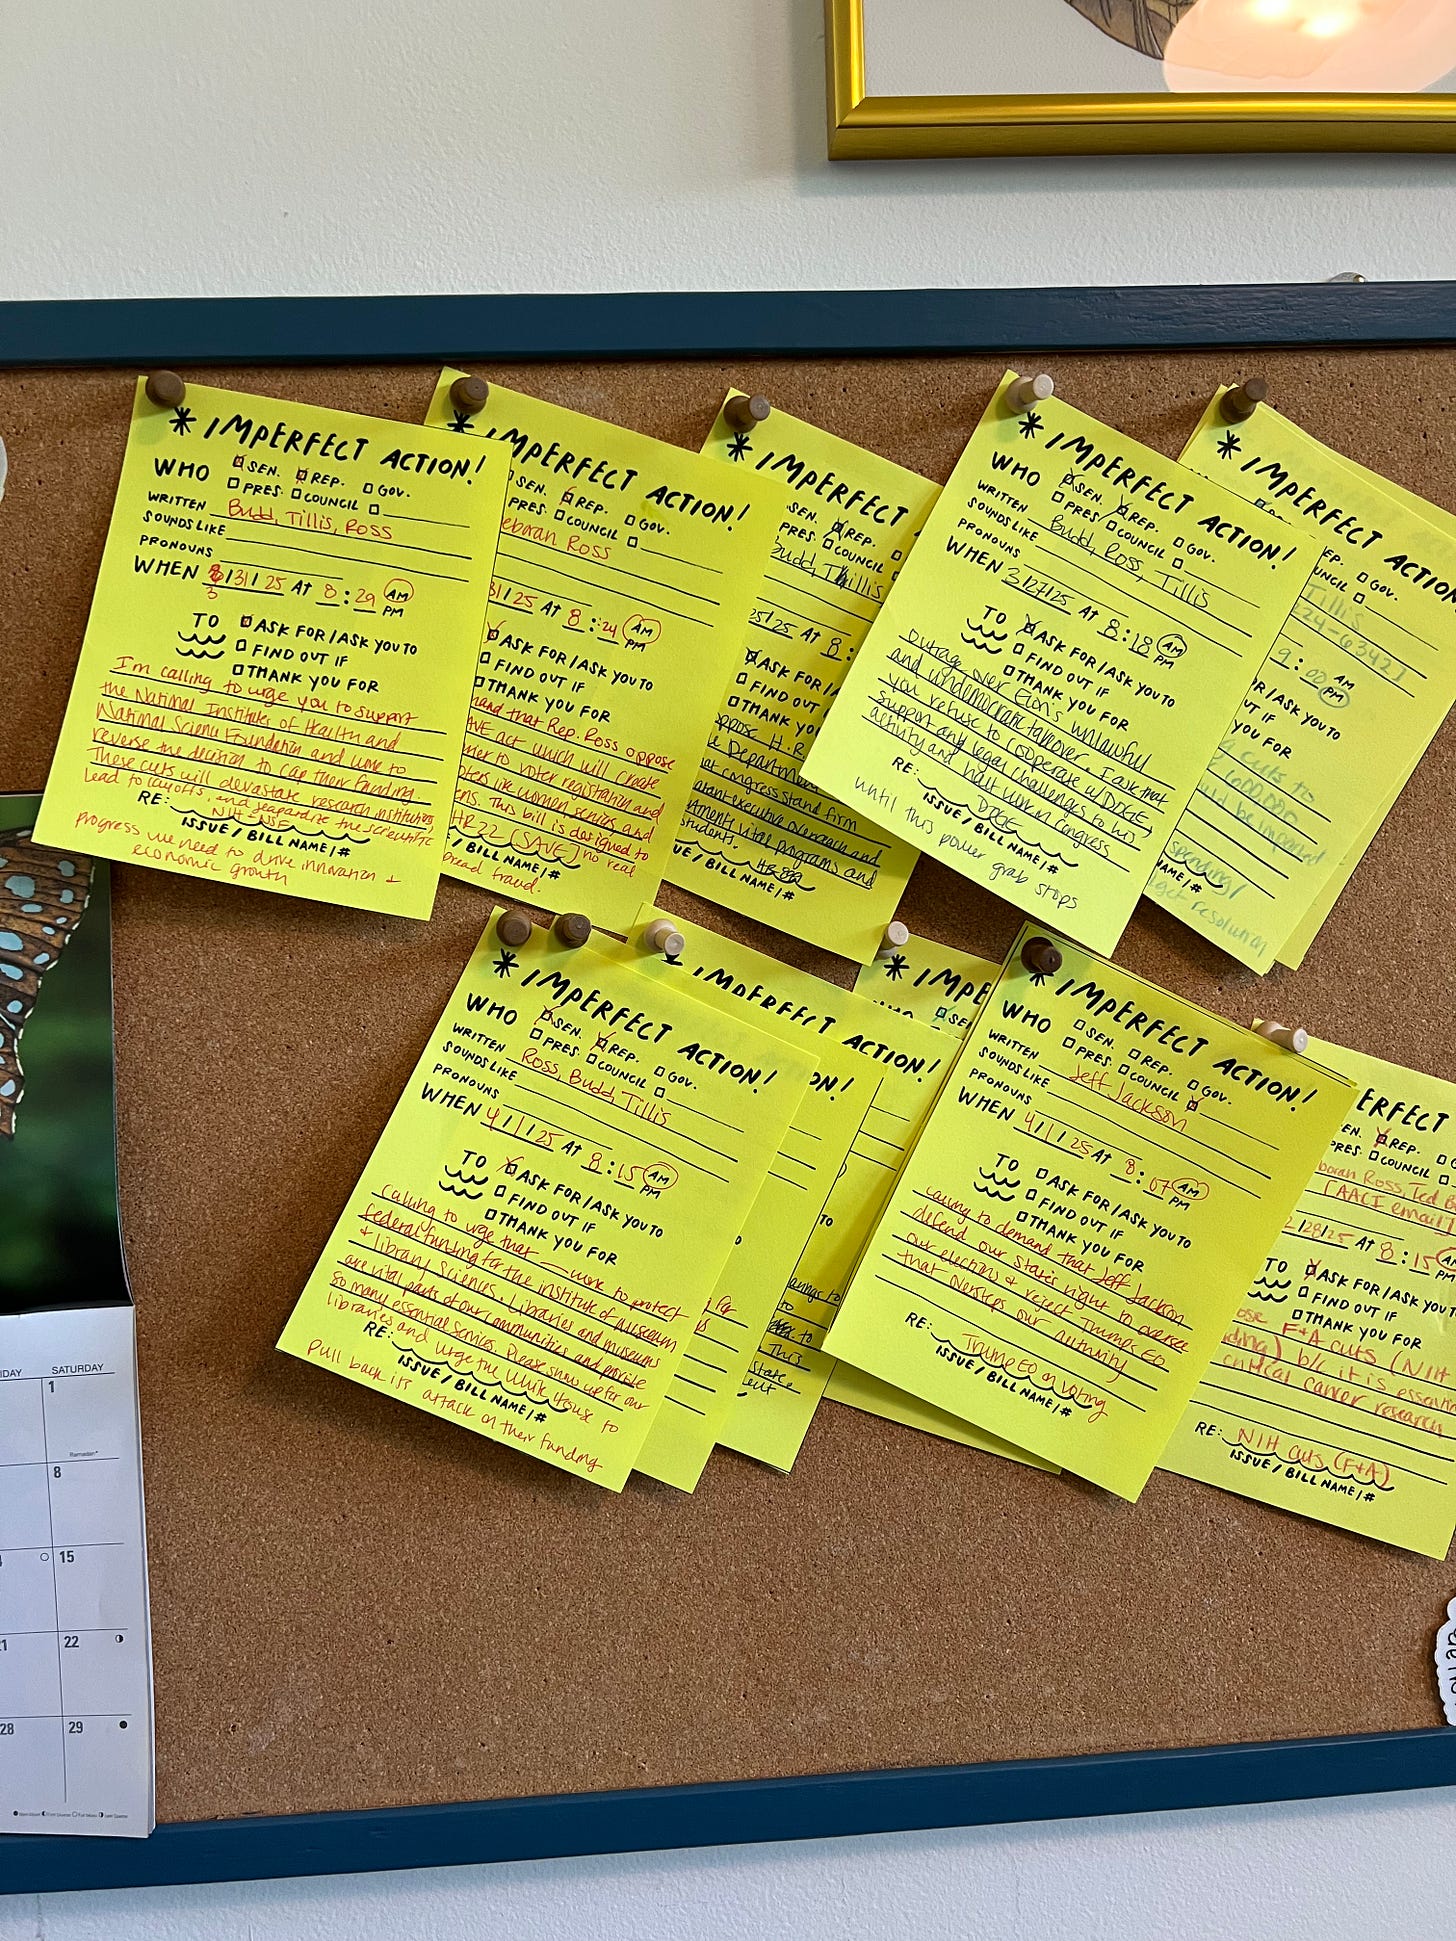 * IMPERFECT ACTION!
WHO SEN. REP. GOV.
PRES. COUNCIL
WRITTEN Budd, Tillis, Ross
SOUNDS LIKE
PRONOUNS
WHEN 3/31/25 AT 8:29 AM
PM
TO ASK FOR/ASK YOU TO
FIND OUT IF
THANK YOU FOR
I'm calling to urge you to support
the National Institutes of Health and
National Science Foundation and work to
reverse the decision to cap their funding.
These cuts will devastate research institutions,
lead to layoffs, and jeapardize the scientific
RE: NIH-NSF
ISSUE / BILL NAME / #
progress we need to drive innovation +
economic growth
* IMPERFECT ACTION!
SEN. REP. GOV.
PRES. COUNCIL
eborah Ross
31/25 AT 8:24 AM
PM
ASK FOR/ASK YOU TO
FIND OUT IF
THANK YOU FOR
mand that Rep. Ross oppose
AVE act which will create
rier to voter registration and
oters like women, service, and
ens. This bill is designed to
HR22 (SAVE) no real
/ BILL NAME / #
pread fraud.
* IMPERFECT
SEN. REP.
PRES. COUNCIL
Budd, Thillis
25/25 AT 8:
ASK FOR/A
FIND OUT
THANK YOU
oppose H.R.
Department
at congress stand firm
executive overreach and
vital programs and
students.
UE / BILL NAME / #
* IMPERFECT ACTION!
WHO SEN. REP. GOV.
PRES COUNCIL
WRITTEN Budd, Ross, Tillis
SOUNDS LIKE
PRONOUNS
WHEN 3/27/25 AT 8:18 AM
PM
TO ASK FOR/ASK YOU TO
FIND OUT IF
THANK YOU FOR
Outrage over Elon's unlawful
and undemocratic takeover. I ask that
you refuse to cooperate w/DOGE,
support any legal challenges to his
activity and halt work in congress
RE: DOGE
ISSUE / BILL NAME / #
until this power grab stops
* IMPERFECT ACTION
REP. GOV.
UNCIL
Tillis
224-6342
9:00 AM
PM
OR/ASK YOU TO
UT IF
YOU FOR
cuts to
spending/
NAME / #
get resolution
* IMPERFECT ACTION!
WHO SEN. REP. GOV.
PRES. COUNCIL
WRITTEN Ross, Budd, Tillis
SOUNDS LIKE
PRONOUNS
WHEN 4/1/25 AT 8:15 AM
PM
TO ASK FOR/ASK YOU TO
FIND OUT IF
THANK YOU FOR
Calling to urge that ___ work to protect
federal funding for the institute of museum
+ library sciences. Libraries and museums
are vital parts of our communities and provide
so many essential services. Please show up for our
libraries and urge the White House to
RE:
ISSUE / BILL NAME / #
pull back its attack on their funding
ON!
IMPERFECT ACTION!
* IMPE
WHO SEN
* IMPERFECT ACTION!
WHO SEN. REP. GOV.
PRES. COUNCIL
WRITTEN Jeff Jackson
SOUNDS LIKE
PRONOUNS
WHEN 4/1/25 AT 8:07 AM
PM
TO ASK FOR/ASK YOU TO
FIND OUT IF
THANK YOU FOR
calling to demand that Jeff Jackson
defend our state's right to oversee
our elections + reject Trump's EO
that oversteps our authority
RE: Trump EO on voting
ISSUE / BILL NAME / #
ERFECT
EN. REP. G
PRES. COUNCIL
borah Ross, Ted B
(AACI email)
2/28/25 AT 8:15 AM
PM
TO ASK FOR/ASK YOU T
FIND OUT IF
THANK YOU FOR
ose F+A cuts (NIH
ding) b/c it is essenti
critical cancer research
RE: NIH cuts (F+A)
ISSUE / BILL NAME / #
IDAY SATURDAY
1
Ramadan*
8
15
21 22
28 29